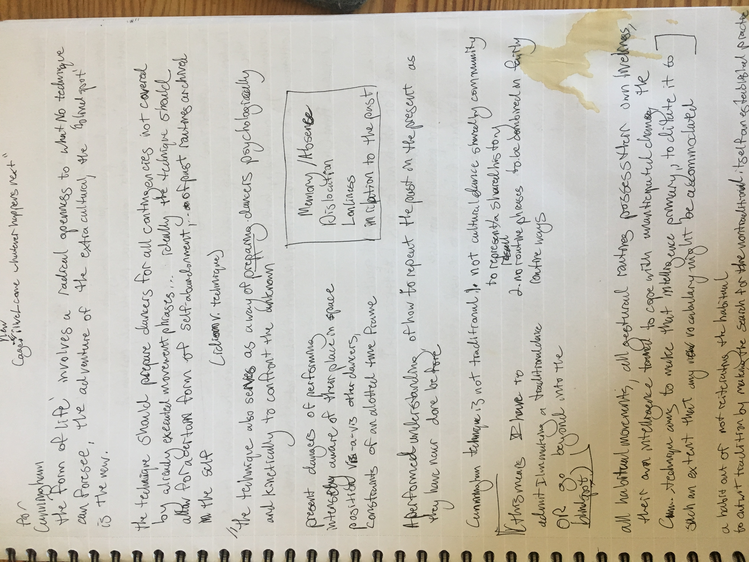 For
Cunningham
new
Cage "welcome whatever happens next"
the form of life involves a radical openness to what no technique
can foresee, the adventure of the extracultural, the "blind spot"
is the new.
the technique should prepare dancers for all contingencies not covered
by already executed movement phrases... ideally the technique should
allow for a certain form of self-abandonment, of past routines archived
in the self
(idiom v. technique)
"the technique also serves as a way of preparing dancers psychologically
and kinetically to confront the unknown
Memory/Absence
Dislocation
Loneliness
in relation to the past
present dangers of performing
intensely aware of their place in space
positioned vis-a-vis other dancers,
constraints of an allotted time frame
A performed understanding of how to repeat the past in the present as
they have never done before
Cunningham technique is not traditional 1. not cultural dance shared by community
to represent a shared history
2. no routine phrases to be combined in fairly
routine ways
this means I have to
admit I'm making a traditional dance
OR go beyond into the
blindspot
all habitual movements, all gestural routines possess their own liveliness,
their own intelligence to cope with unanticipated change, the
Cunn. technique aims to make that intelligence primary, to dilate it to
such an extent that any new vocabulary might be accommodated
a habit out of not reiterating the habitual
to outwit tradition by making the search for the nontraditional itself an established practice